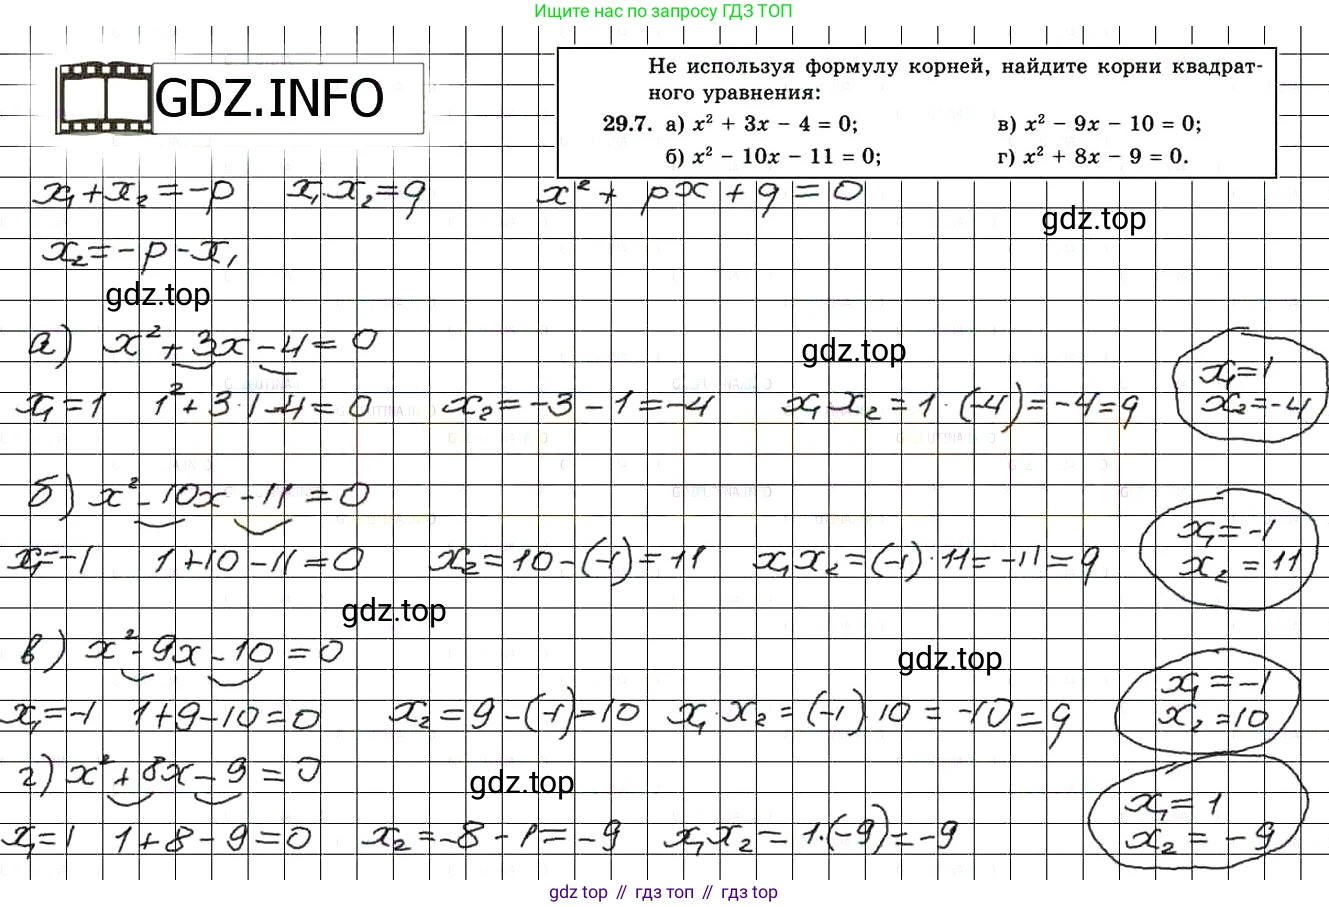 Ищите нас по запросу ГДЗ ТОП
GDZ.INFO
Не используя формулу корней, найдите корни квадрат-
ного уравнения:
29.7. а) x² + 3x − 4 = 0; в) x² − 9x − 10 = 0;
б) x² − 10x − 11 = 0; г) x² + 8x − 9 = 0.
x₁ + x₂ = −p x₁·x₂ = q x² + px + q = 0
gdz.top
x₂ = −p − x₁
gdz.top
а) x² + 3x − 4 = 0
gdz.top
x₁ = 1 1² + 3·1 − 4 = 0 x₂ = −3 − 1 = −4 x₁·x₂ = 1·(−4) = −4 = q
x₁ = 1
x₂ = −4
б) x² − 10x − 11 = 0
x₁ = −1 1 + 10 − 11 = 0 x₂ = 10 − (−1) = 11 x₁x₂ = (−1)·11 = −11 = q
x₁ = −1
x₂ = 11
gdz.top
в) x² − 9x − 10 = 0
gdz.top
x₁ = −1 1 + 9 − 10 = 0 x₂ = 9 − (−1) = 10 x₁·x₂ = (−1)·10 = −10 = q
x₁ = −1
x₂ = 10
г) x² + 8x − 9 = 0
gdz.top
x₁ = 1 1 + 8 − 9 = 0 x₂ = −8 − 1 = −9 x₁x₂ = 1·(−9) = −9
x₁ = 1
x₂ = −9
gdz top // гдз топ // gdz top